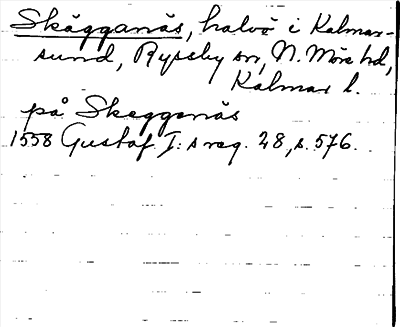 Skäggenäs, halvö i Kalmar-
sund, Ryssby sn, N. Möre hd,
Kalmar l.
på Skeggenäs
1558 Gustaf I:s reg. 28, s. 576.